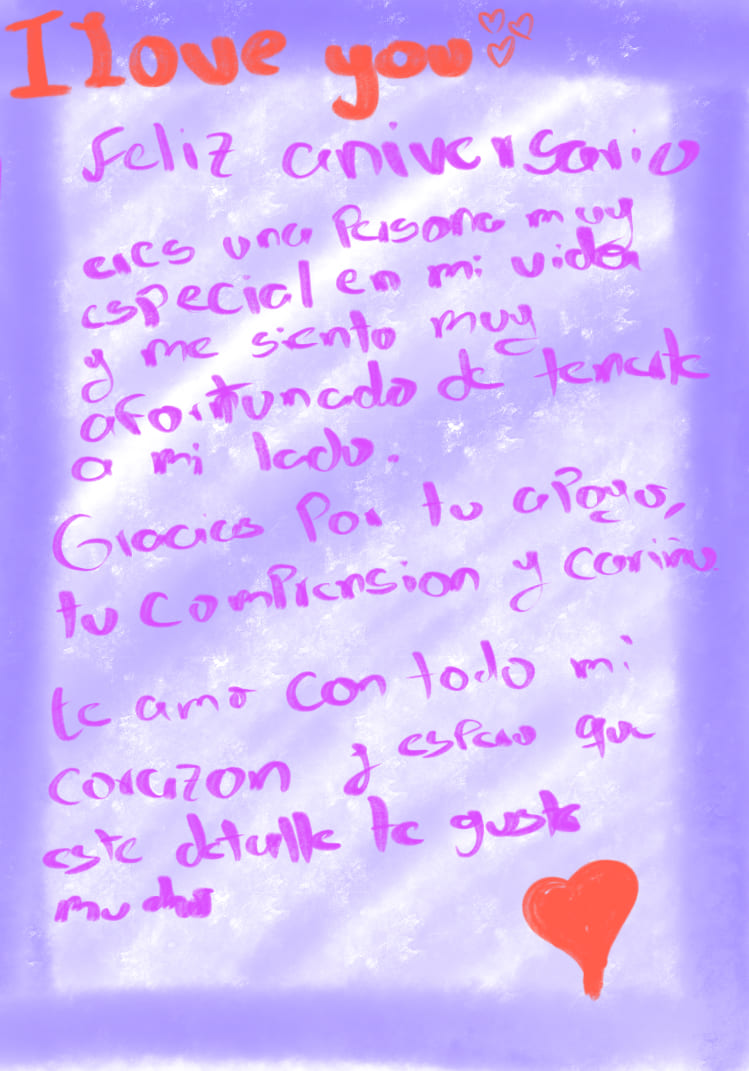 I love you
Feliz aniversario
eres una Persona muy
especial en mi vida
y me siento muy
afortunado de tenerte
a mi lado.
Gracias Por tu apoyo,
tu comprension y cariño
te amo con todo mi
corazon y espero que
este detalle te guste
mucho